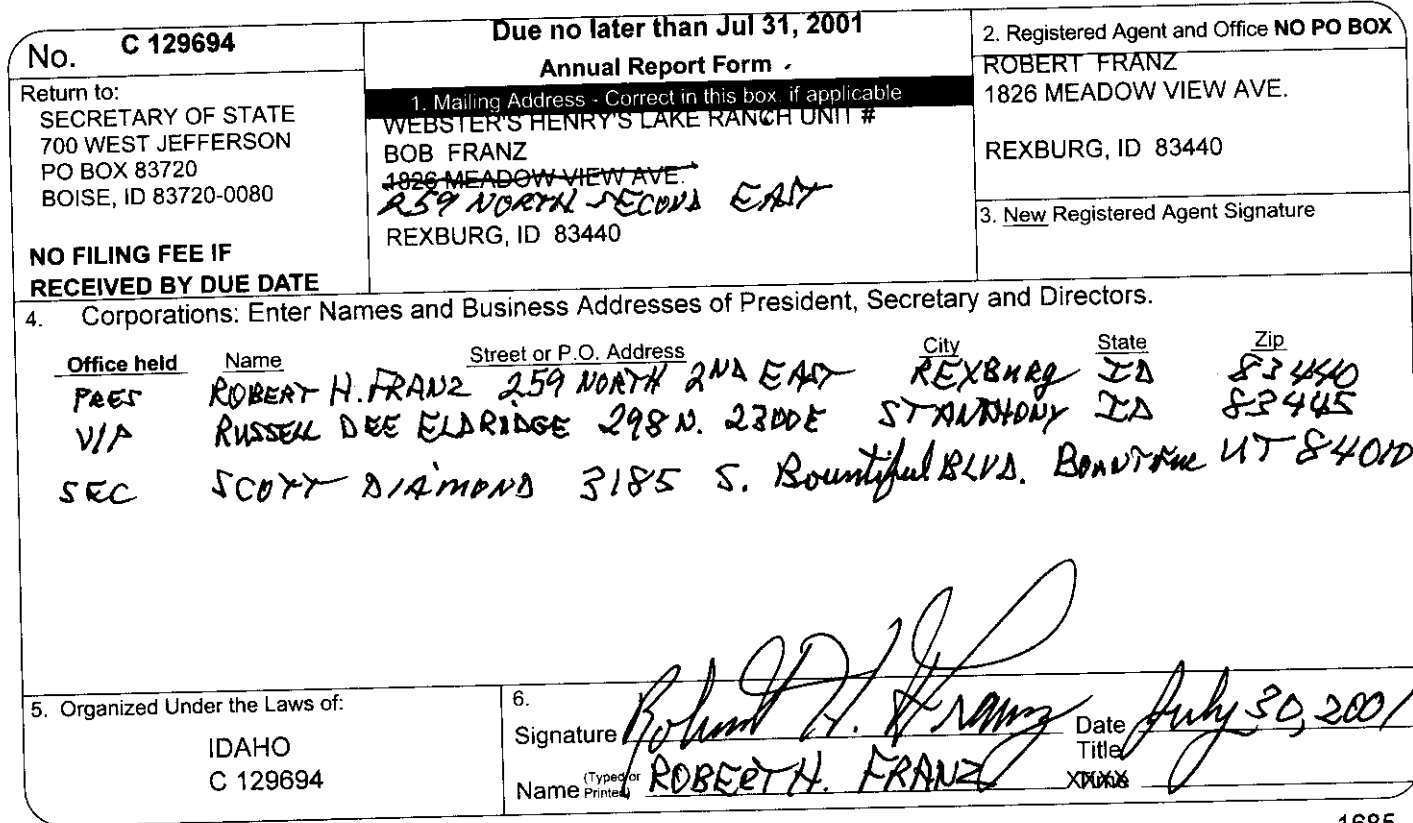 No. C 129694
Return to:
SECRETARY OF STATE
700 WEST JEFFERSON
PO BOX 83720
BOISE, ID 83720-0080
NO FILING FEE IF
RECEIVED BY DUE DATE
Due no later than Jul 31, 2001
Annual Report Form
1. Mailing Address - Correct in this box, if applicable
WEBSTER'S HENRY'S LAKE RANCH UNIT #
BOB FRANZ
1826 MEADOW VIEW AVE.
259 NORTH SECOND EAST
REXBURG, ID 83440
2. Registered Agent and Office NO PO BOX
ROBERT FRANZ
1826 MEADOW VIEW AVE.
REXBURG, ID 83440
3. New Registered Agent Signature
4. Corporations: Enter Names and Business Addresses of President, Secretary and Directors.
Office held Name Street or P.O. Address City State Zip
PRES ROBERT H. FRANZ 259 NORTH 2ND EAST REXBURG ID 83440
V/P RUSSELL DEE ELDRIDGE 298 N. 2300E ST ANTHONY ID 83445
SEC SCOTT DIAMOND 3185 S. Bountiful BLVD. BOUNTIFUL UT 84010
5. Organized Under the Laws of:
IDAHO
C 129694
6.
Signature Robert H. Franz Date July 30, 2001
Name (Typed or Printed) ROBERT H. FRANZ Title
1685